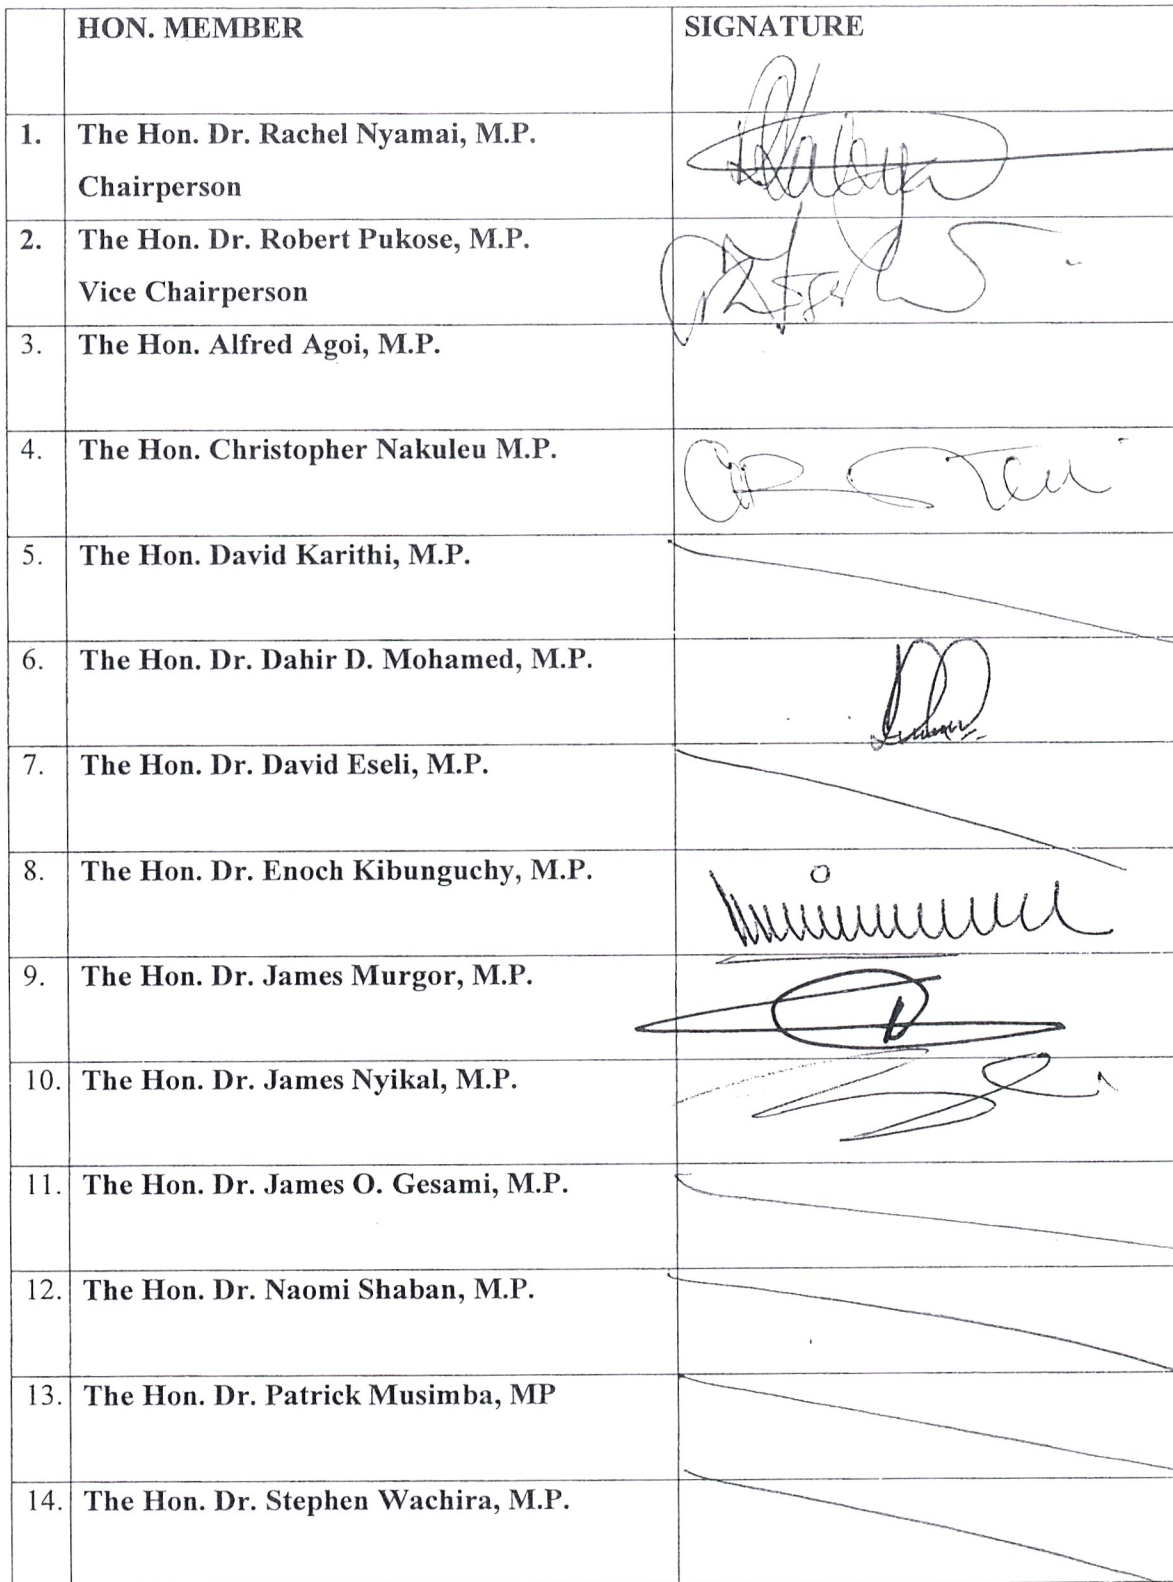 HON. MEMBER SIGNATURE
1. The Hon. Dr. Rachel Nyamai, M.P.
Chairperson
2. The Hon. Dr. Robert Pukose, M.P.
Vice Chairperson
3. The Hon. Alfred Agoi, M.P.
4. The Hon. Christopher Nakuleu M.P.
5. The Hon. David Karithi, M.P.
6. The Hon. Dr. Dahir D. Mohamed, M.P.
7. The Hon. Dr. David Eseli, M.P.
8. The Hon. Dr. Enoch Kibunguchy, M.P.
9. The Hon. Dr. James Murgor, M.P.
10. The Hon. Dr. James Nyikal, M.P.
11. The Hon. Dr. James O. Gesami, M.P.
12. The Hon. Dr. Naomi Shaban, M.P.
13. The Hon. Dr. Patrick Musimba, MP
14. The Hon. Dr. Stephen Wachira, M.P.